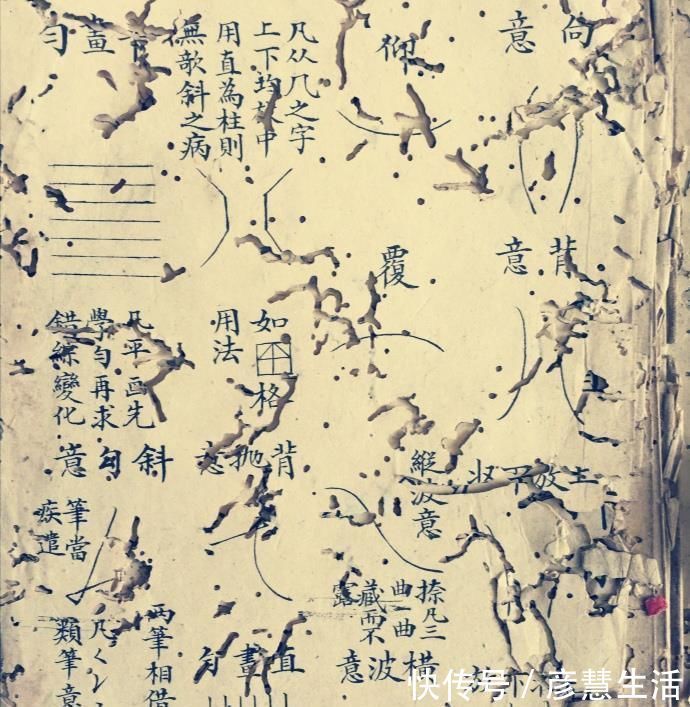 向意
仰
畫勻
凡从几之字
上下均中
用直為柱則
無欹斜之病
背意
覆
如格
用法
凡平画先
學勻再求
錯綜變化
左放收
縱波意
背拋意
斜勾意
捺凡三
曲一曲
藏而不
露
筆當
疾遣
橫波意
直畫勻
兩筆相借
凡く
類筆意
下
快传号 / 彦慧生活